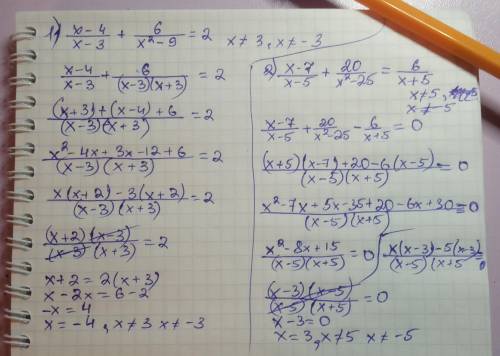 1) x-4/x-3 + 6/x²-9 = 2   x≠3, x≠-3
x-4/x-3 + 6/(x-3)(x+3) = 2
(x+3)+(x-4)+6/(x-3)(x+3) = 2
x²-4x+3x-12+6/(x-3)(x+3) = 2
x(x+2)-3(x+2)/(x-3)(x+3) = 2
(x+2)(x-3)/(x-3)(x+3) = 2
x+2 = 2(x+3)
x-2x = 6-2
-x = 4
x = -4, x≠3 x≠-3
2) x-7/x-5 + 20/x²-25 = 6/x+5
x≠5,
x≠-5
x-7/x-5 + 20/x²-25 - 6/x+5 = 0
(x+5)(x-7)+20-6(x-5)/(x-5)(x+5) = 0
x²-7x+5x-35+20-6x+30/(x-5)(x+5) = 0
x²-8x+15/(x-5)(x+5) = 0   x(x-3)-5(x-3)/(x-5)(x+5) = 0
(x-3)(x-5)/(x-5)(x+5) = 0
x-3=0
x=3, x≠5 x≠-5